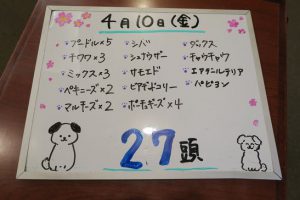 4月10日(金)
プードル×5
チワワ×3
ミックス×3
ペキニーズ×2
マルチーズ×2
シバ
シュナウザー
サモエド
ビアデッドコリー
ポーチュギーズ×4
ダックス
チャウチャウ
エアデールテリア
パピヨン
27頭